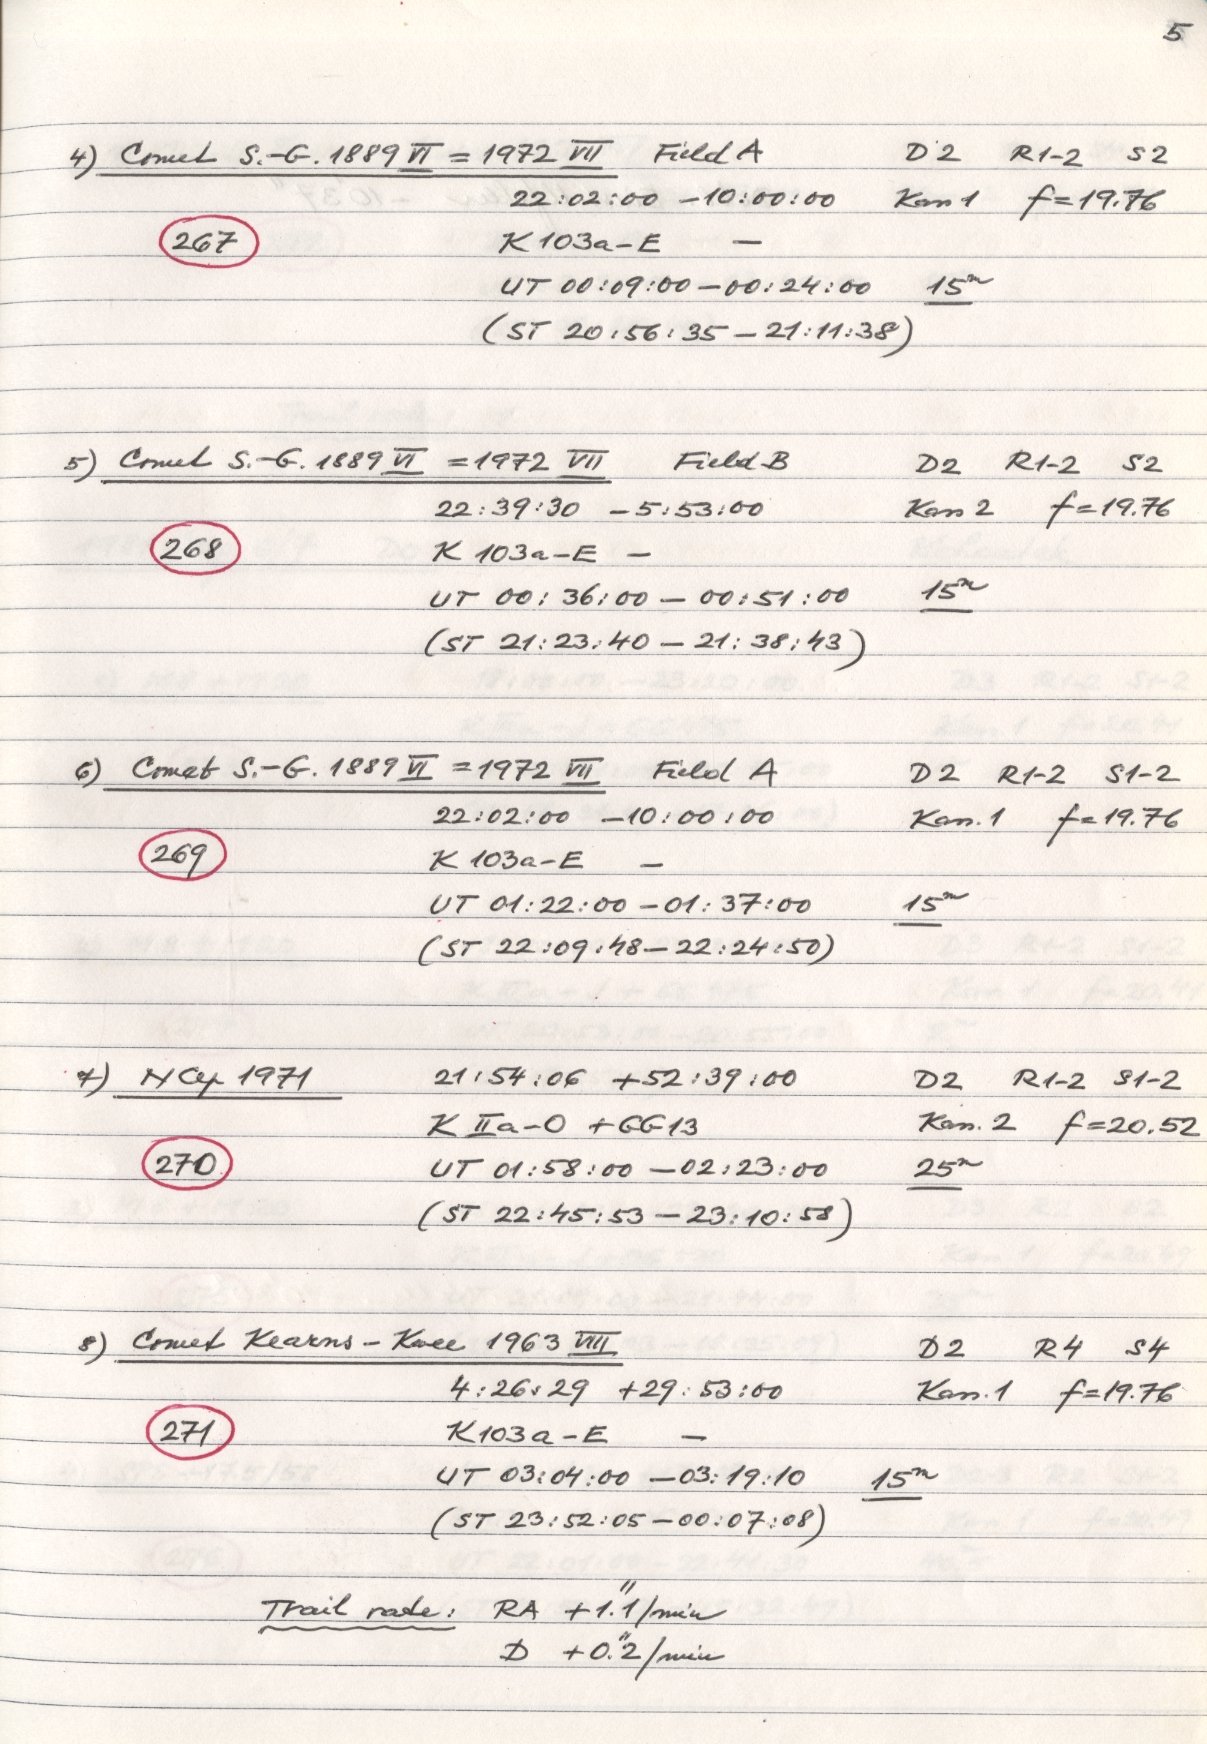 5
4) Comet S.-G. 1889 VI = 1972 VII Field A D2 R1-2 S2
22:02:00 -10:00:00 Kan 1 f=19.76
267 K 103a-E —
UT 00:09:00 - 00:24:00 15m
(ST 20:56:35 - 21:11:38)
5) Comet S.-G. 1889 VI = 1972 VII Field B D2 R1-2 S2
22:39:30 -5:53:00 Kan 2 f=19.76
268 K 103a-E —
UT 00:36:00 - 00:51:00 15m
(ST 21:23:40 - 21:38:43)
6) Comet S.-G. 1889 VI = 1972 VII Field A D2 R1-2 S1-2
22:02:00 -10:00:00 Kan. 1 f=19.76
269 K 103a-E —
UT 01:22:00 - 01:37:00 15m
(ST 22:09:48 - 22:24:50)
7) NCy 1971 21:54:06 +52:39:00 D2 R1-2 S1-2
K IIa-O + GG13 Kan. 2 f=20.52
270 UT 01:58:00 - 02:23:00 25m
(ST 22:45:53 - 23:10:58)
8) Comet Kearns - Kwee 1963 VIII D2 R4 S4
4:26:29 +29:53:00 Kan. 1 f=19.76
271 K 103a-E —
UT 03:04:00 - 03:19:10 15m
(ST 23:52:05 - 00:07:08)
Trail rate: RA +1."1/min
D +0."2/min